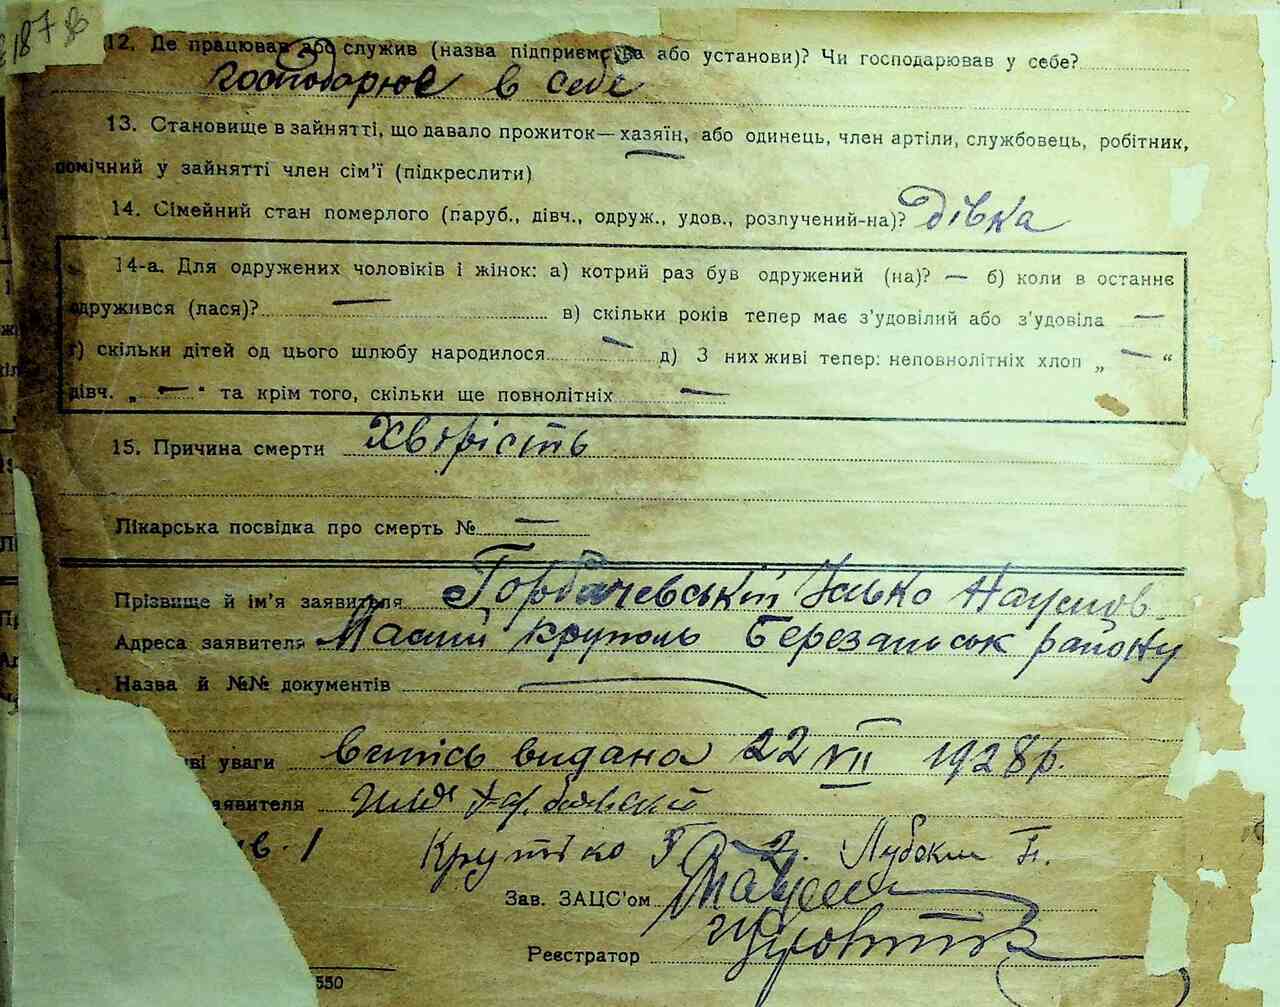 187
12. Де працював або служив (назва підприємства або установи)? Чи господарював у себе?
господарює в себе
13. Становище в зайнятті, що давало прожиток—хазяїн, або одинець, член артіли, службовець, робітник,
помічний у зайнятті член сім'ї (підкреслити)
14. Сімейний стан померлого (паруб., дівч., одруж., удов., розлучений-на)? дівка
14-а. Для одружених чоловіків і жінок: а) котрий раз був одружений (на)? — б) коли в останнє
одружився (лася)? — в) скільки років тепер має з'удовілий або з'удовіла —
г) скільки дітей од цього шлюбу народилося — д) З них живі тепер: неповнолітніх хлоп „ — “
дівч. „ — “ та крім того, скільки ще повнолітніх —
15. Причина смерти Хворість
Лікарська посвідка про смерть № —
Прізвище й ім'я заявителя Горбачевській Ілько Наумов
Адреса заявителя Малий Круполь Березанськ району
Назва й №№ документів —
ві уваги витись видана 22 VII 1928 р.
заявителя
в. 1 Крутько Г.
Зав. ЗАЦС'ом
Реєстратор
550